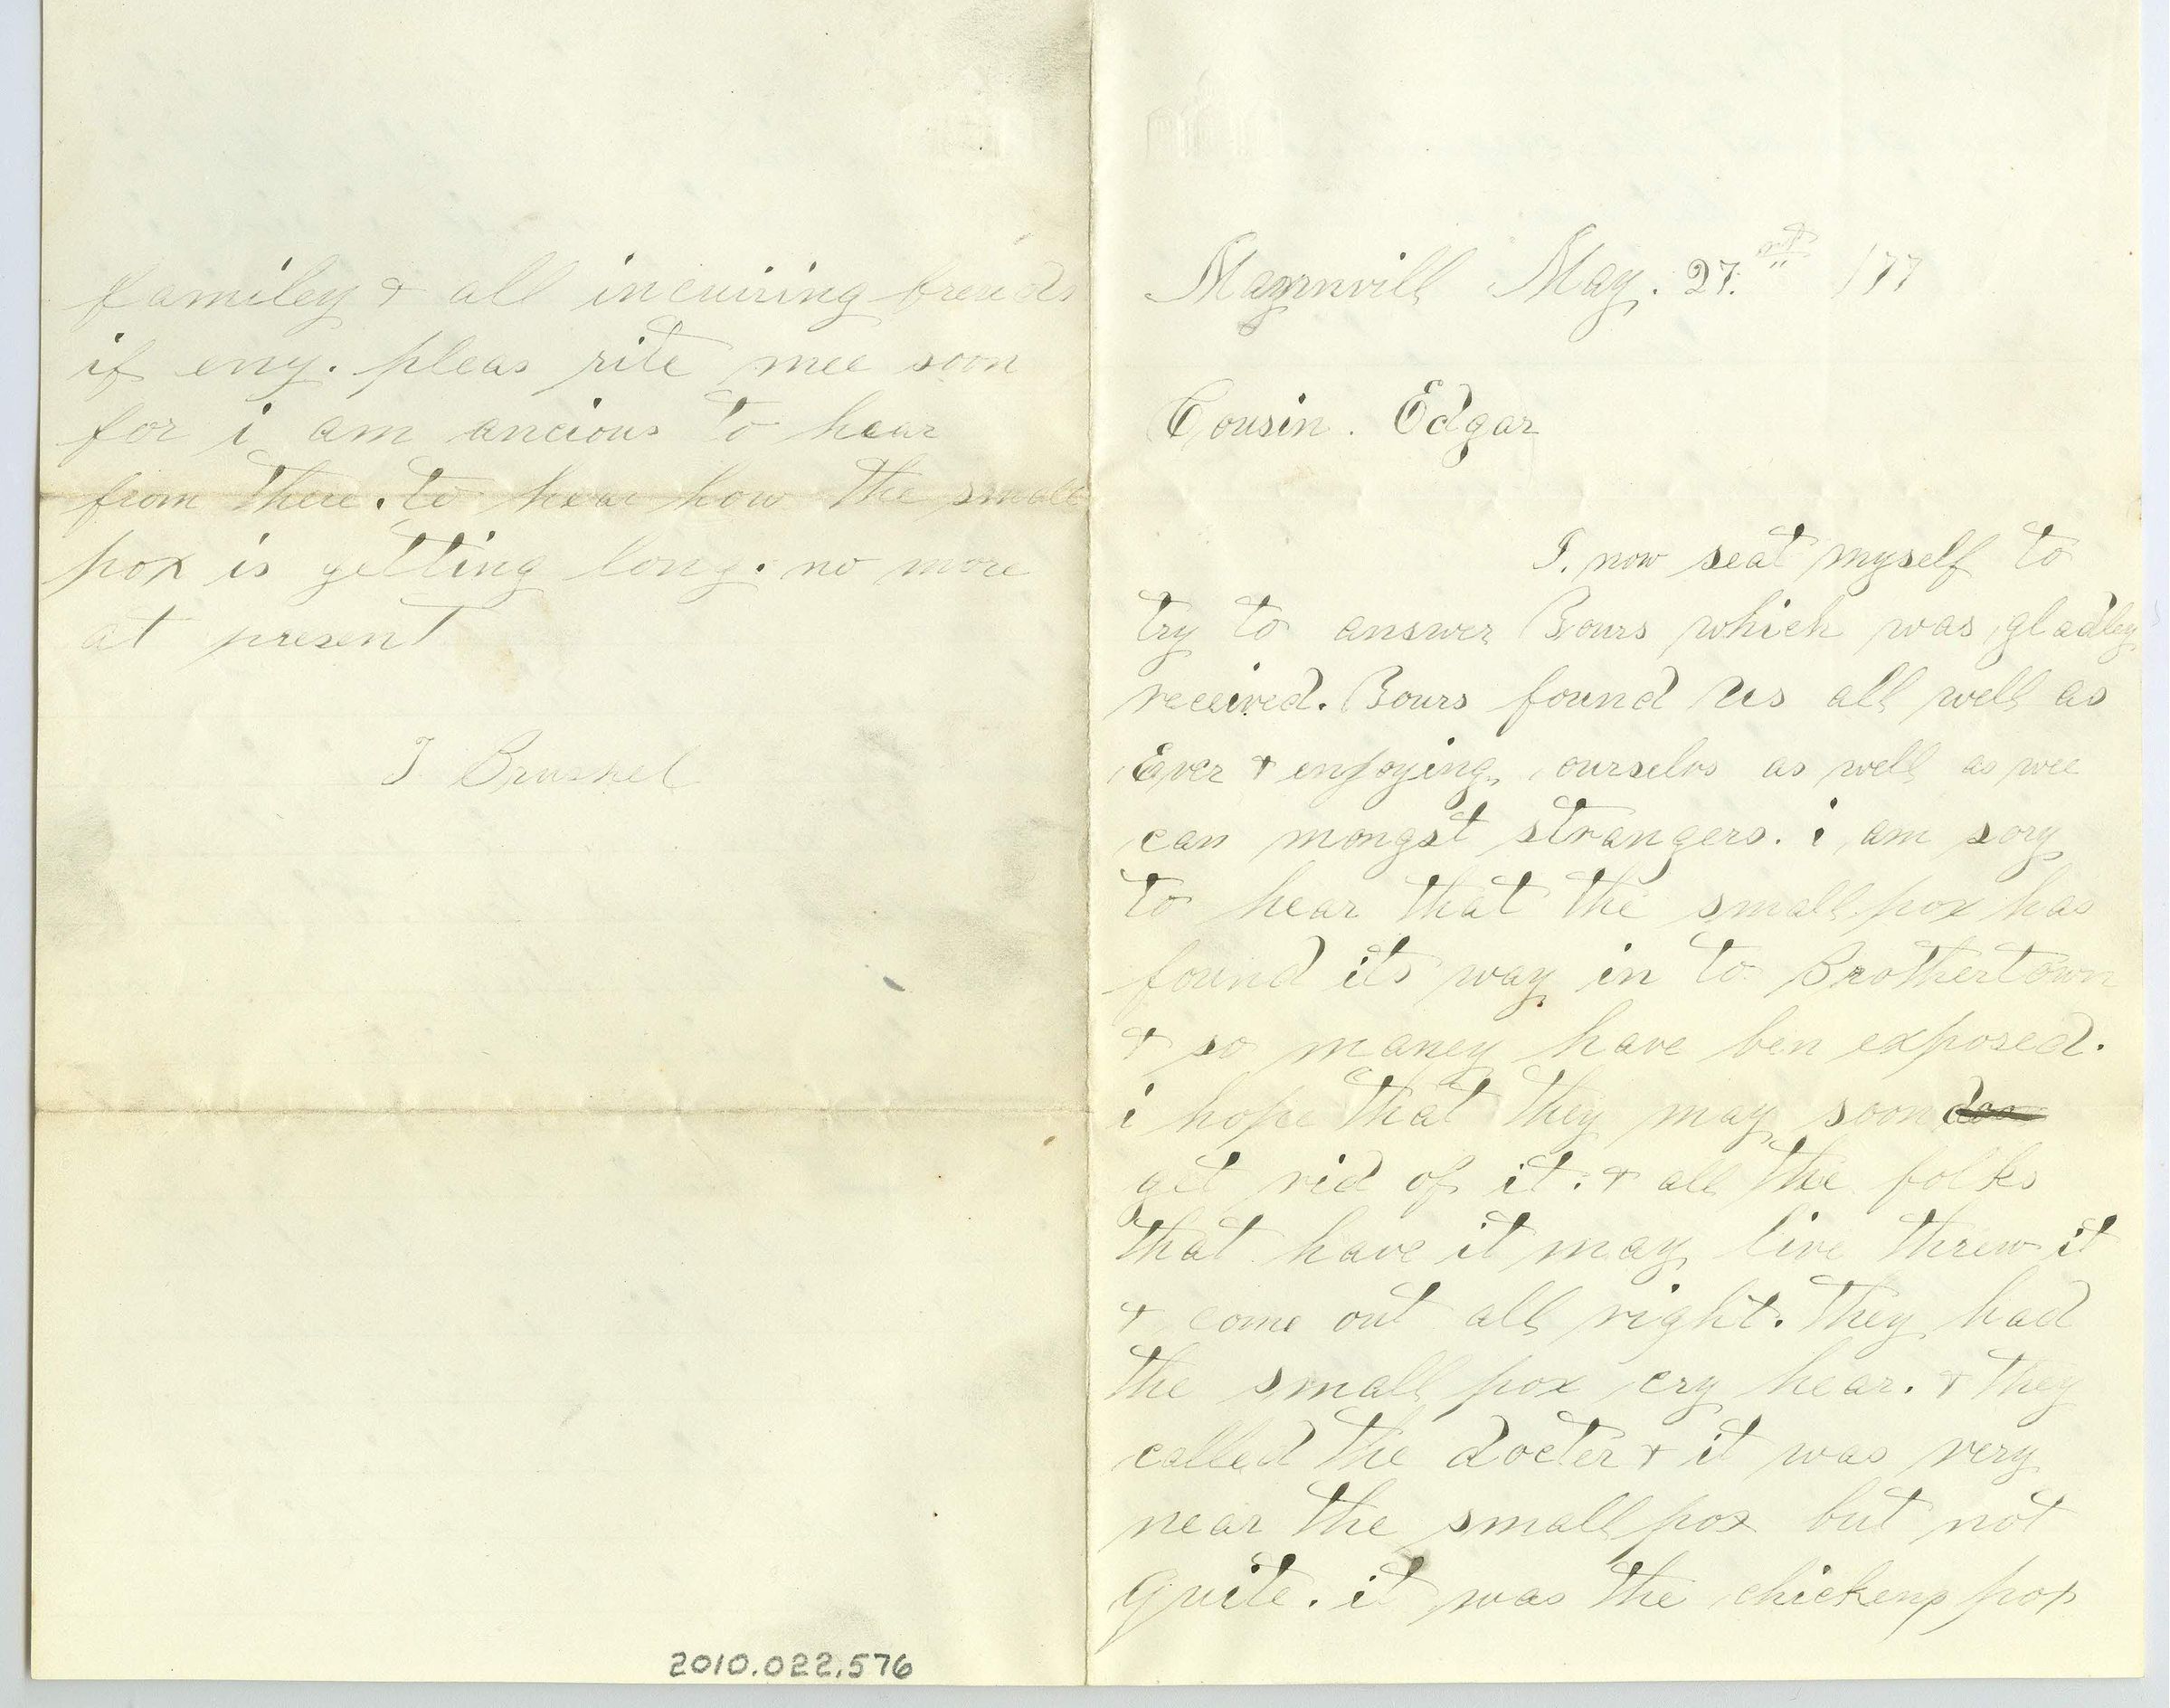 May. 27. /77
Cousin. Edgar
I. now seat myself to
try to answer yours which was gladley
received. yours found us all well as
Ever & enjoying ourselvs as well as wee
can mongst strangers. i am sory
to hear that the small pox has
found its way in to Brothertown
& so maney have ben exposed.
i hope that they may soon
get rid of it. & all the folks
that have it may live threw it
& come out all right. they had
the small pox cry hear. & they
called the docter & it was very
near the small pox but not
quite. it was the chickens pox
familey & all incuiring
if eny. pleas rite mee soon
for i am ancious to hear
from there. to hear how the small
pox is getting long. no more
at present
2010.022.576